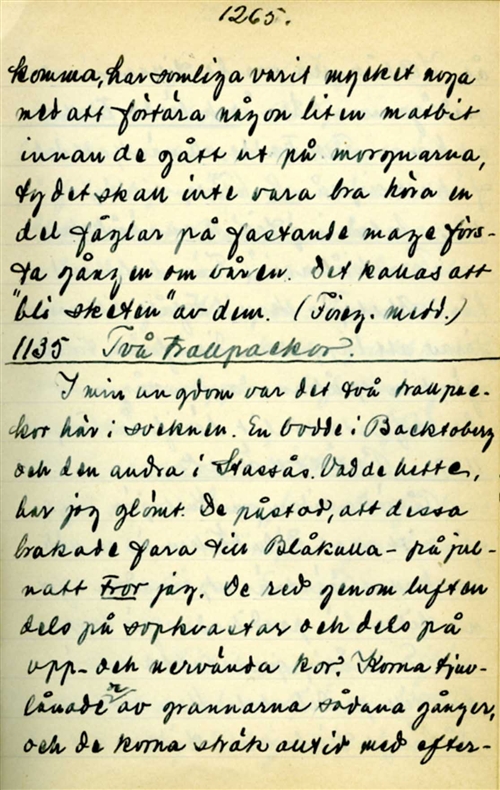 1265.
komma, har somliga varit mycket noga
med att förtära någon liten matbit
innan de gått ut på morgnarna,
ty det skall inte vara bra höra en
del fåglar på fastande mage förs-
ta gången om våren. Det kallas att
"bli sketen" av dem. (Föreg. medd.)
1135 Två trollpackor.
I min ungdom var det två trollpac-
kor här i socknen. En bodde i Backtoberg
och den andra i Stassås. Vad de hette,
har jag glömt. De påstod, att dessa
brakade fara till Blåkulla - på jul-
natt tror jag. De red genom luften
dels på sopkvastar och dels på
upp- och nervända kor. Korna tjuv-
lånade av grannarna sådana gånger,
och de korna stråk alltid med efter-